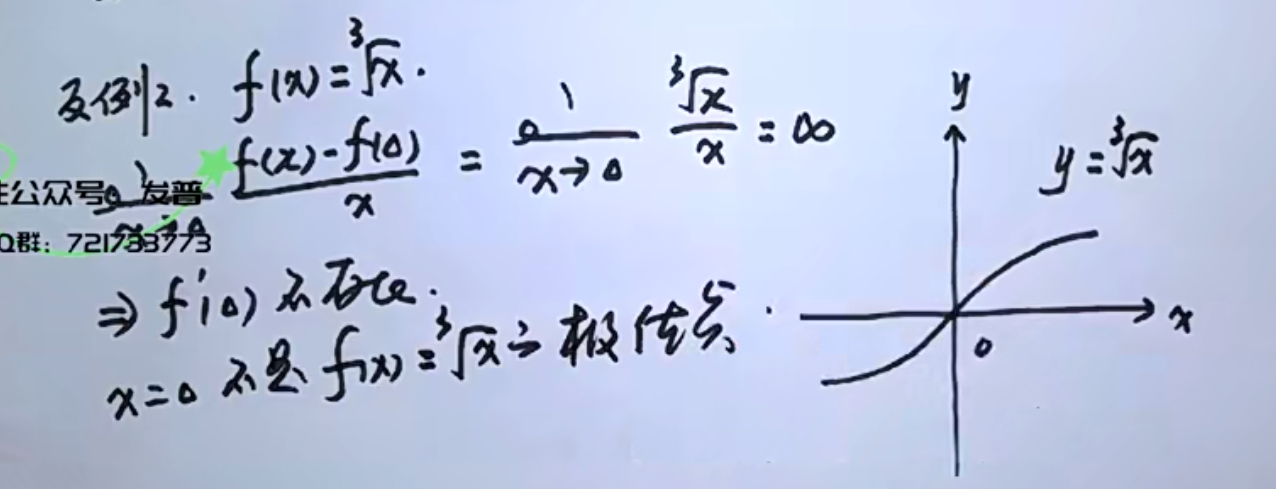 反例2. f(x)=∛x.
lim x→0 (f(x)-f(0))/x = lim x→0 ∛x/x = ∞
注公众号: 发普
Q群: 721733773
⇒ f'(0) 不存在.
x=0 不是 f(x)=∛x 的极值点.
y
y=∛x
x
0